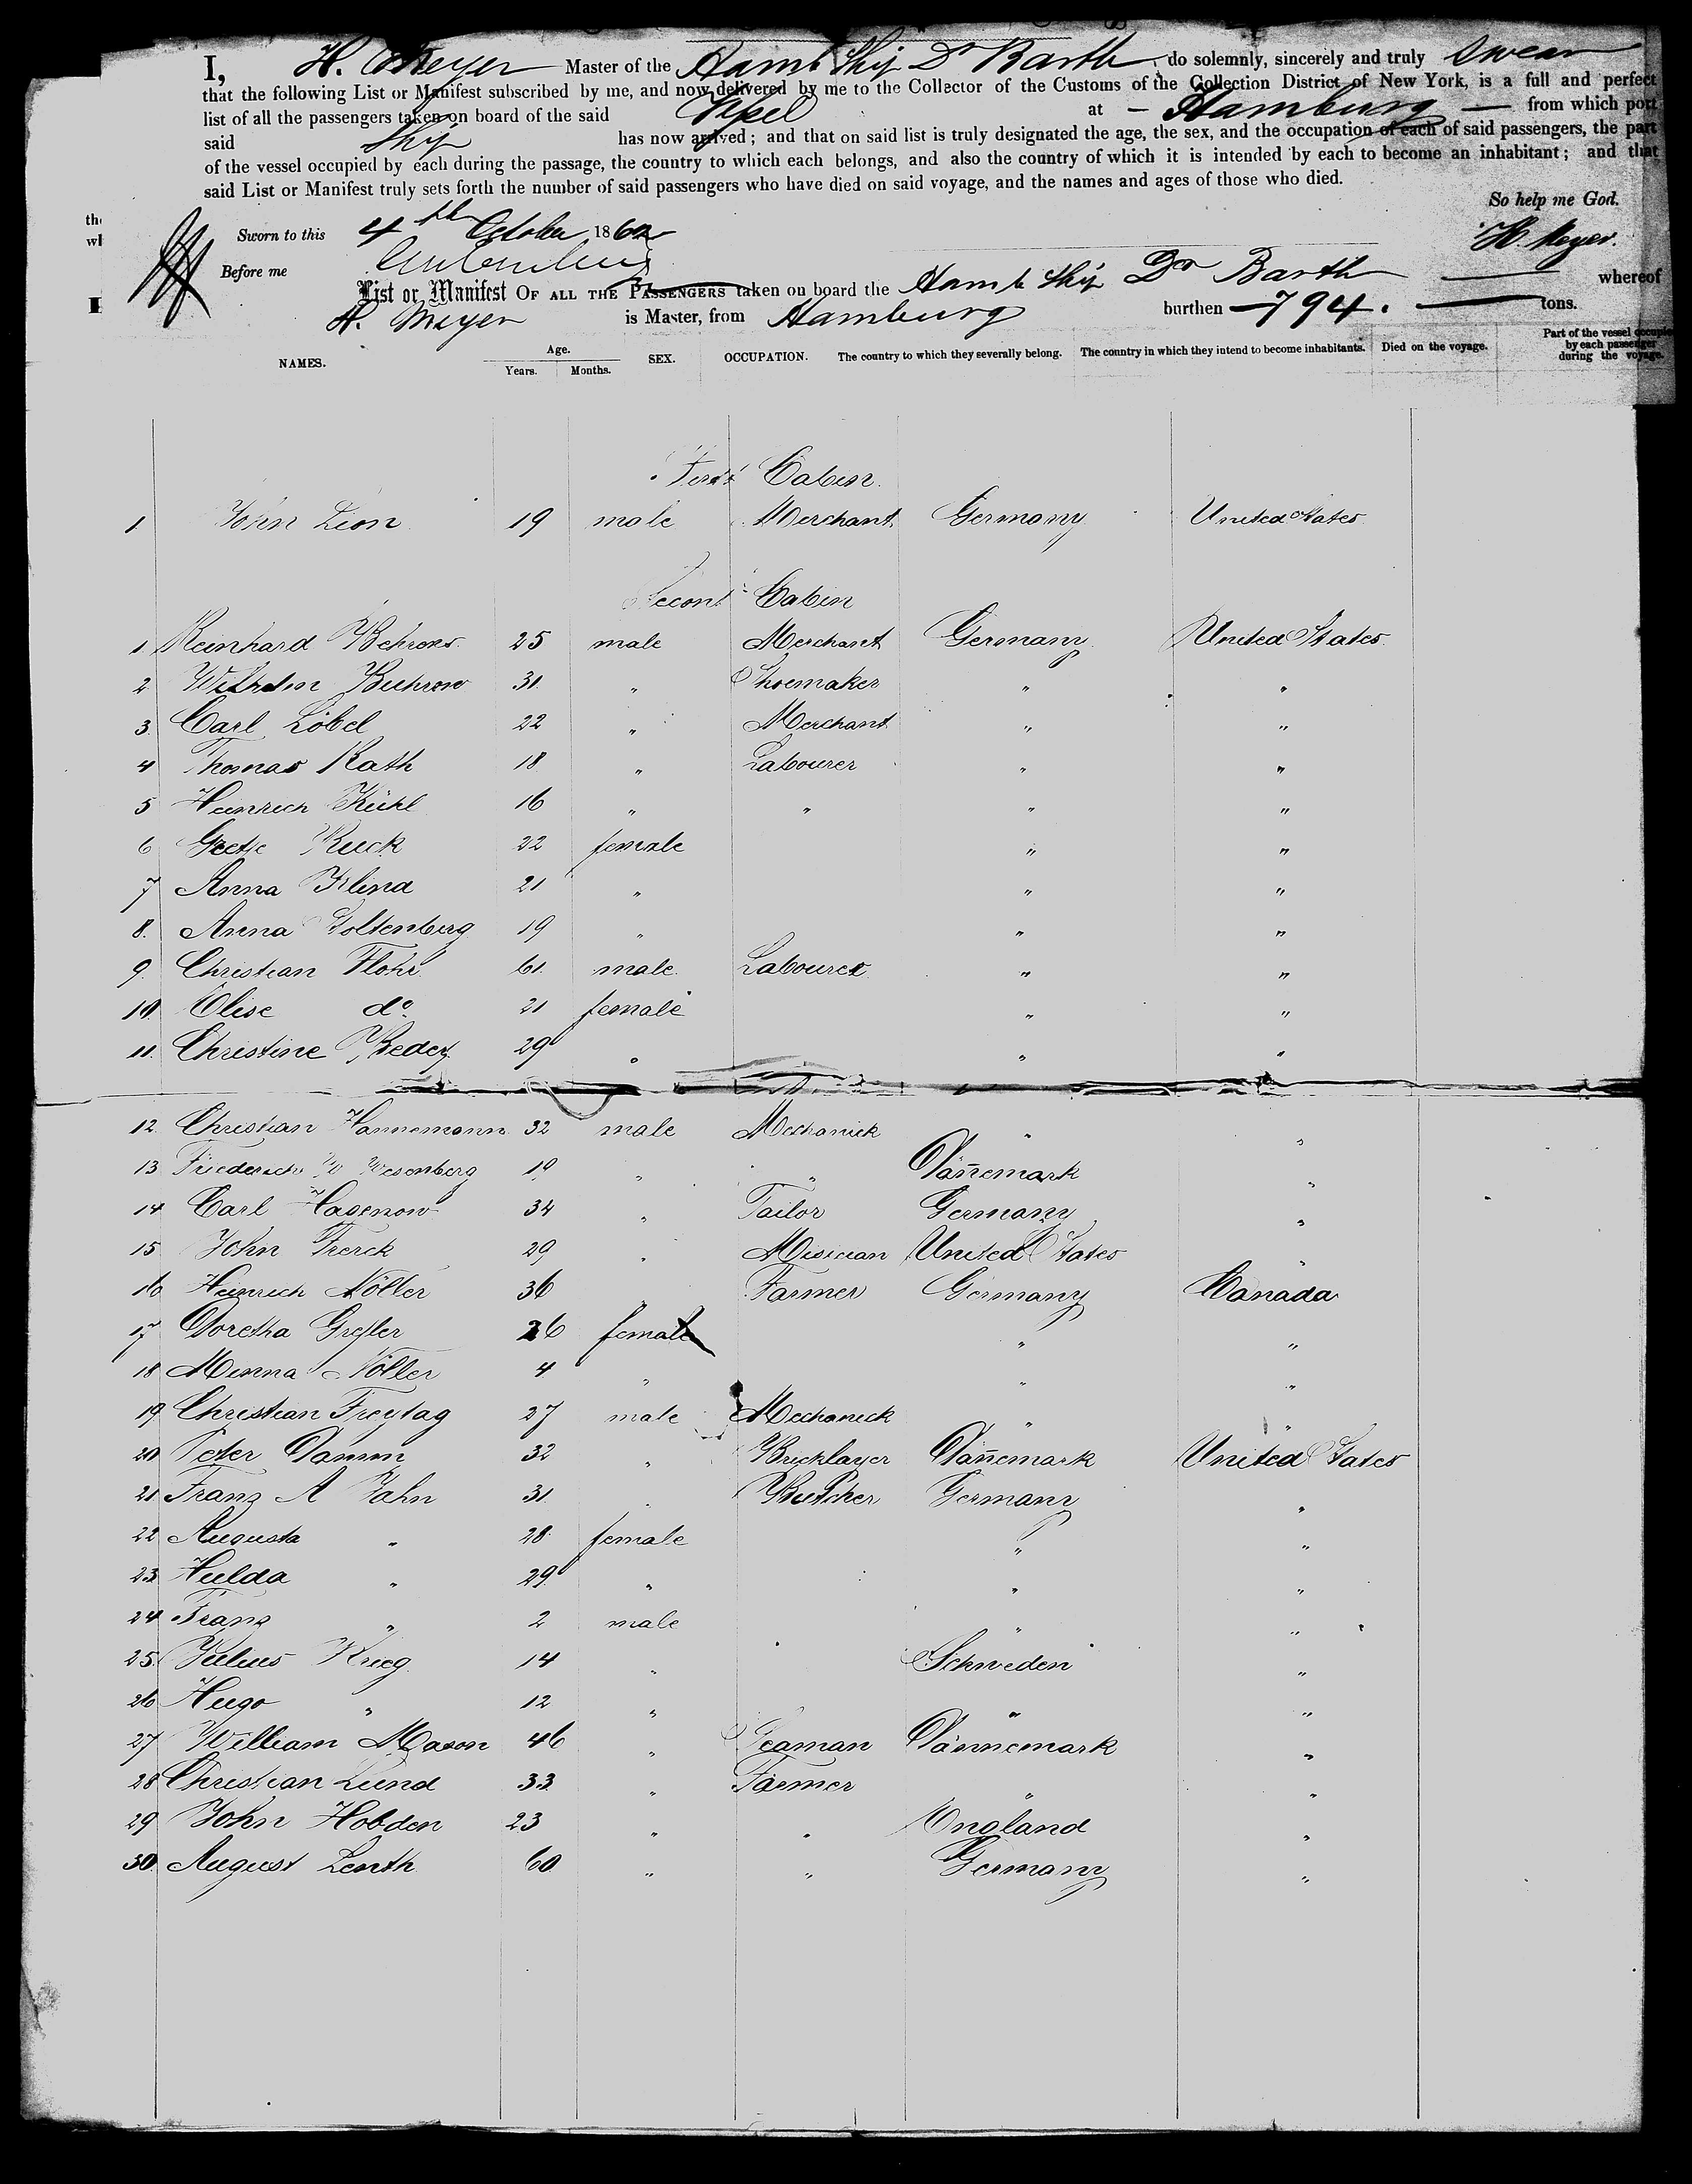 I, H. Meyer Master of the Hamb Ship Dr Barth, do solemnly, sincerely and truly swear
that the following List or Manifest subscribed by me, and now delivered by me to the Collector of the Customs of the Collection District of New York, is a full and perfect
list of all the passengers taken on board of the said at — Hamburg — from which port
said Ship has now arrived; and that on said list is truly designated the age, the sex, and the occupation of each of said passengers, the part
of the vessel occupied by each during the passage, the country to which each belongs, and also the country of which it is intended by each to become an inhabitant; and that
said List or Manifest truly sets forth the number of said passengers who have died on said voyage, and the names and ages of those who died.
So help me God.
Sworn to this 4th October 1862 H. Meyer.
Before me
List or Manifest OF ALL THE PASSENGERS taken on board the Hamb Ship Dr Barth — whereof
H. Meyer is Master, from Hamburg burthen — 794. — tons.
NAMES. Age. Years. Months. SEX. OCCUPATION. The country to which they severally belong. The country in which they intend to become inhabitants. Died on the voyage. Part of the vessel occupied by each passenger during the voyage.
First Cabin.
1 John Lion 19 male Merchant Germany United States
Second Cabin
1 Reinhard Behrens 25 male Merchant Germany United States
2 Wilhelm Buhrow 31 " Shoemaker " "
3 Carl Löbel 22 " Merchant " "
4 Thomas Rath 18 " Labourer " "
5 Heinrich Kühl 16 " " " "
6 Greetje Ruck 22 female " "
7 Anna Klind 21 " " "
8. Anna Goltenberg 19 " " "
9. Christian Flohr 61 male Labourer " "
10 Elise do 21 female " "
11. Christine 29 " " "
12. Christian Hannemann 32 male Mechanick " "
13 Friederich W Wesenberg 19 " " Dännemark "
14 Carl Hagenow 34 " Tailor Germany "
15 John Frerck 29 " Misician United States "
16 Heinrich Nöller 36 " Farmer Germany Canada
17 Doretha Grefler 26 female " "
18 Minna Nöller 4 " " "
19 Christian Freytag 27 male Mechanick " "
20 Peter Damm 32 " Bricklayer Dännemark United States
21 Franz A Jahn 31 " Butcher Germany "
22 Augusta " 28 female " "
23 Hulda " 29 " " "
24 Franz " 2 male " "
25 Julius Krieg 14 " Schweden "
26 Hugo " 12 " " "
27 William Mason 46 " Seaman Dännemark "
28 Christian Lund 33 " Farmer " "
29 John Hobden 23 " " England "
30 August Zenth 60 " " Germany "